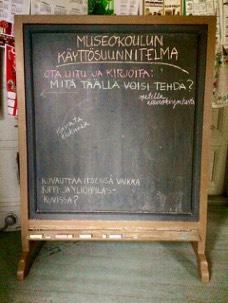 MUSEOKOULUN
KÄYTTÖSUUNNITELMA
OTA LIITU JA KIRJOITA:
MITÄ TÄÄLLÄ VOISI TEHDÄ?
KUVAUTTAA ITSENSÄ VAIKKA
YLIOPPILAS-
KUVISSA?